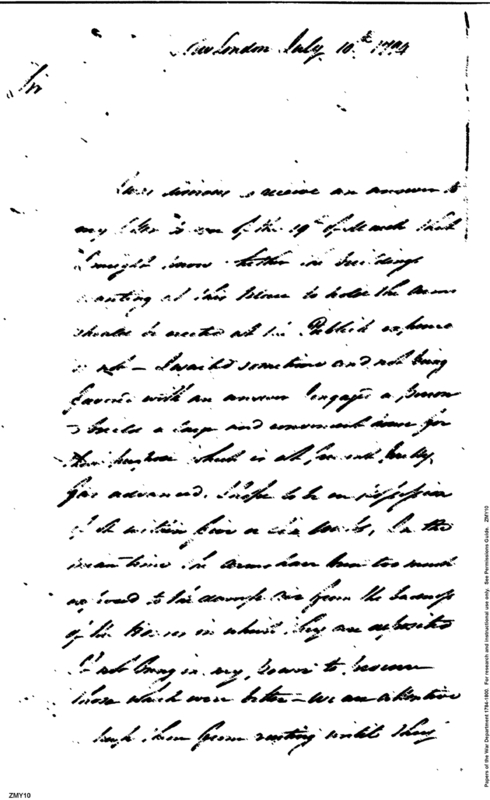 New London July 10th 1794
Sir
I was desirous to receive an answer to
my letter to you of the 19th of March that
I might know whether the buildings
wanting at this place to hold the arms
should be erected at the Publick expence
or not – I waited sometime and not being
favored with an answer I engaged a person
to build a large and convenient house for
this purpose which is at present pretty
far advanced. I hope to be in possession
of it within five or six weeks, In the
mean time the arms have been too much
exposed to the damp air from the badness
of the houses in which they are deposited
it not being in my power to procure
those which were better – we are attentive
keep them from rusting until they
ZMY10
Papers of the War Department 1784-1800. For research and instructional use only. See Permissions Guide. ZMY10